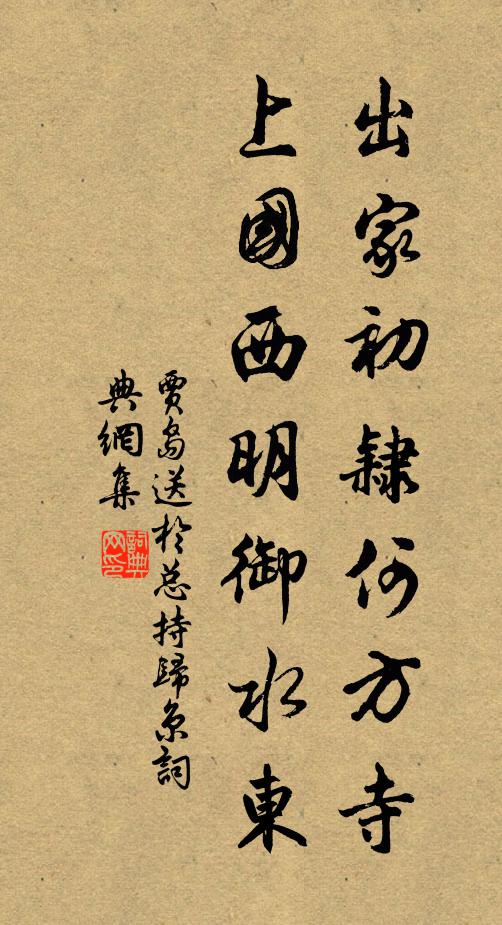 出家初隸何方寺
上國西明御水東
賈島送於总持歸京詞
典網集
詞典
网印